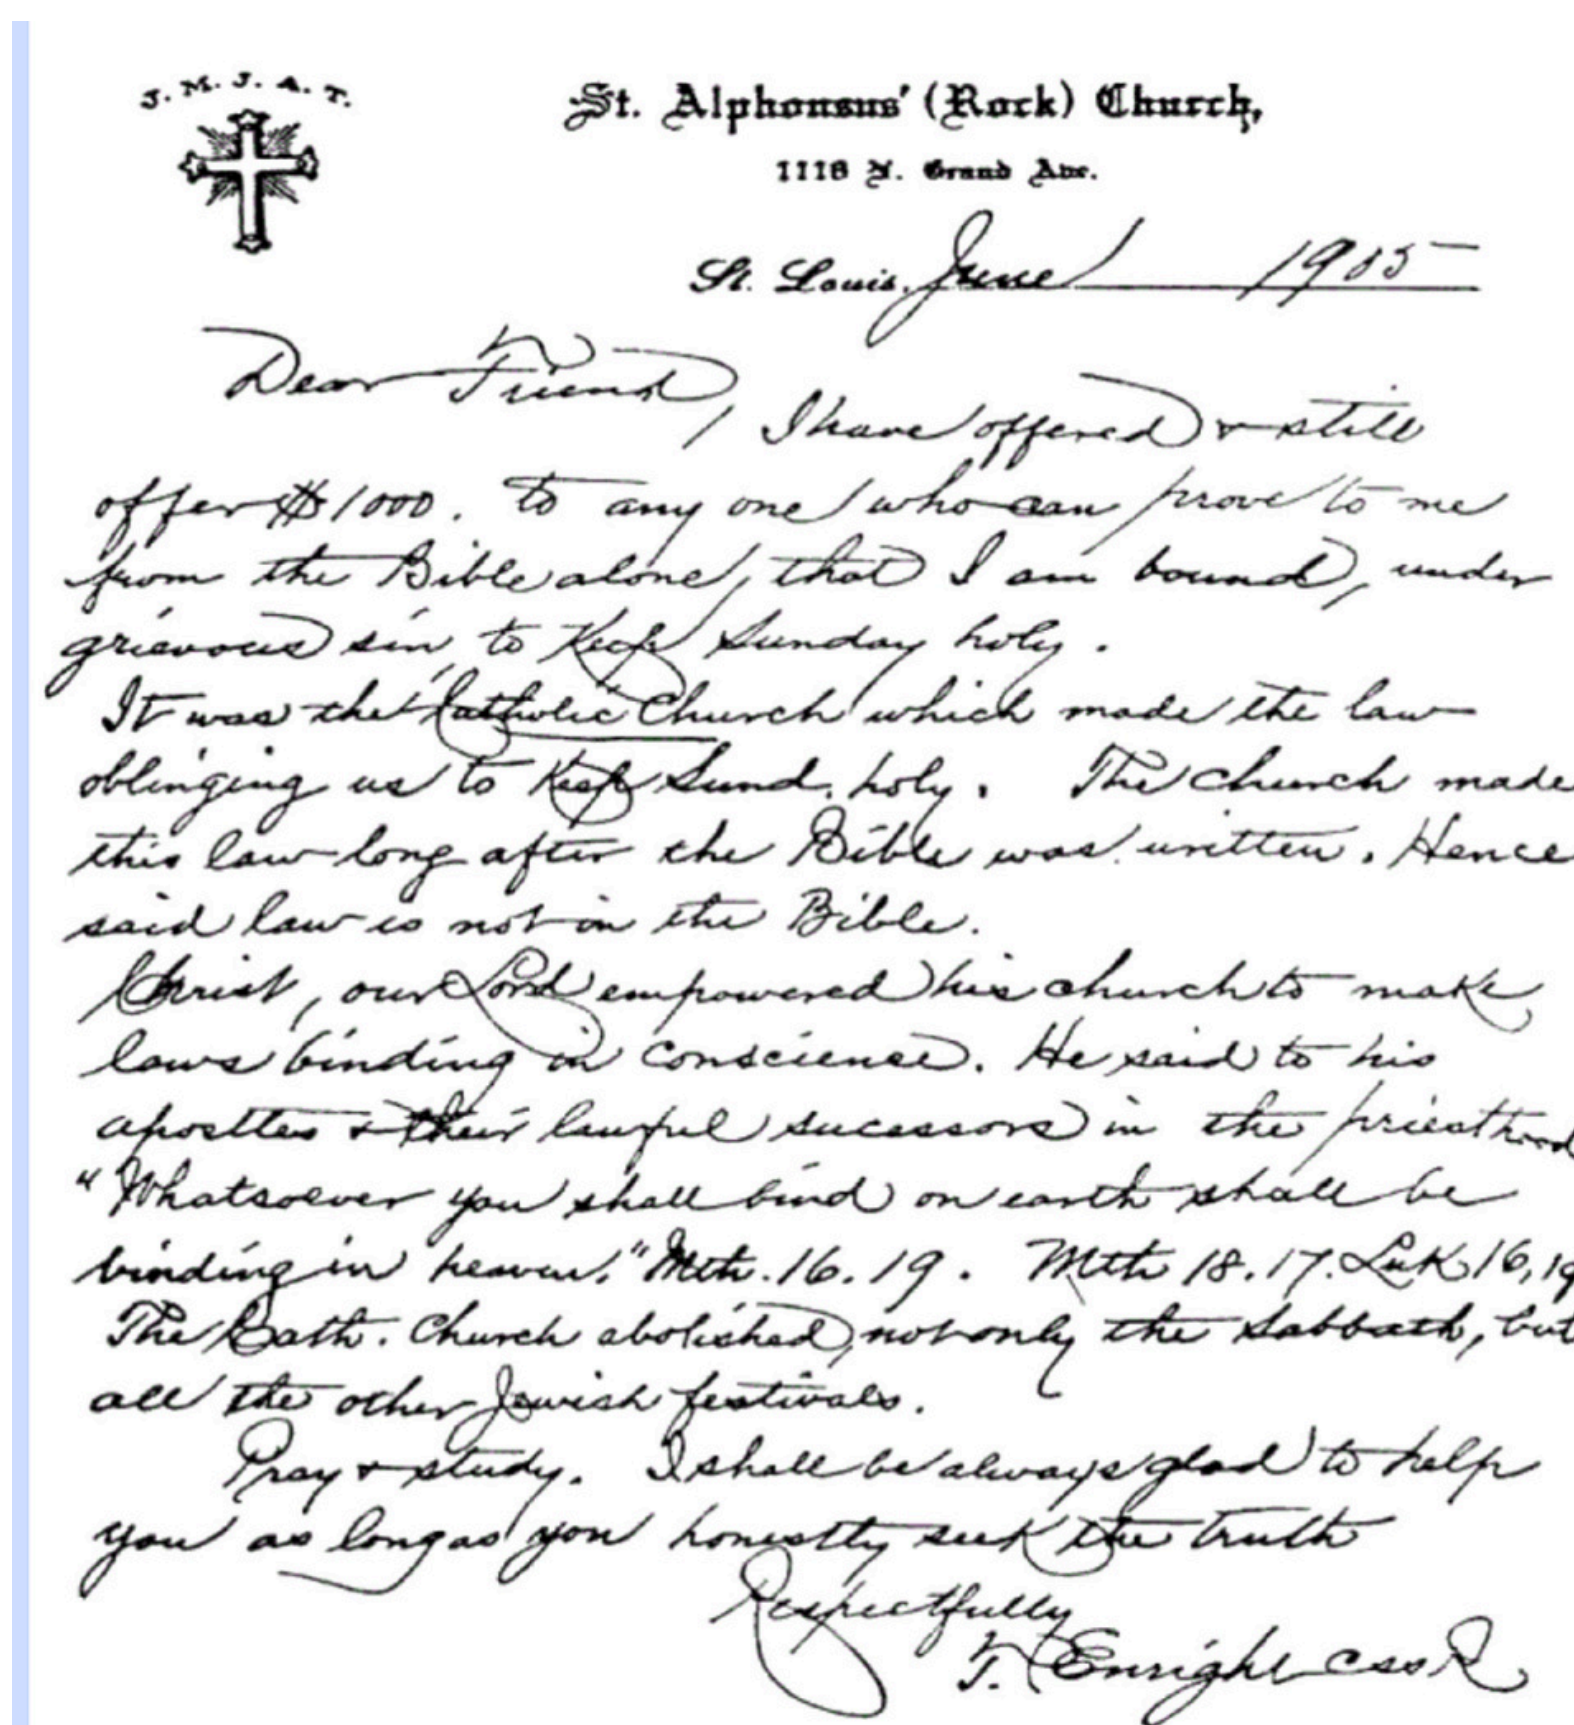 J. M. J. A. T.
St. Alphonsus' (Rock) Church,
1118 N. Grand Ave.
St. Louis, June 1905
Dear Friend,
I have offered & still
offer $1000. to any one who can prove to me
from the Bible alone, that I am bound, under
grievous sin, to Keep Sunday holy.
It was the Catholic Church which made the law
oblinging us to Keep Sund. holy. The church made
this law long after the Bible was written. Hence
said law is not in the Bible.
Christ, our Lord empowered his church to make
laws binding in conscience. He said to his
apostles & their lawful sucessors in the priesthood
"Whatsoever you shall bind on earth shall be
binding in heaven." Mth. 16. 19. Mth 18. 17. Luk 16, 19
The Cath. Church abolished, not only the Sabbath, but
all the other Jewish festivals.
Pray & study. I shall be always glad to help
you as long as you honestly seek the truth
Respectfully
T. Enright CSSR